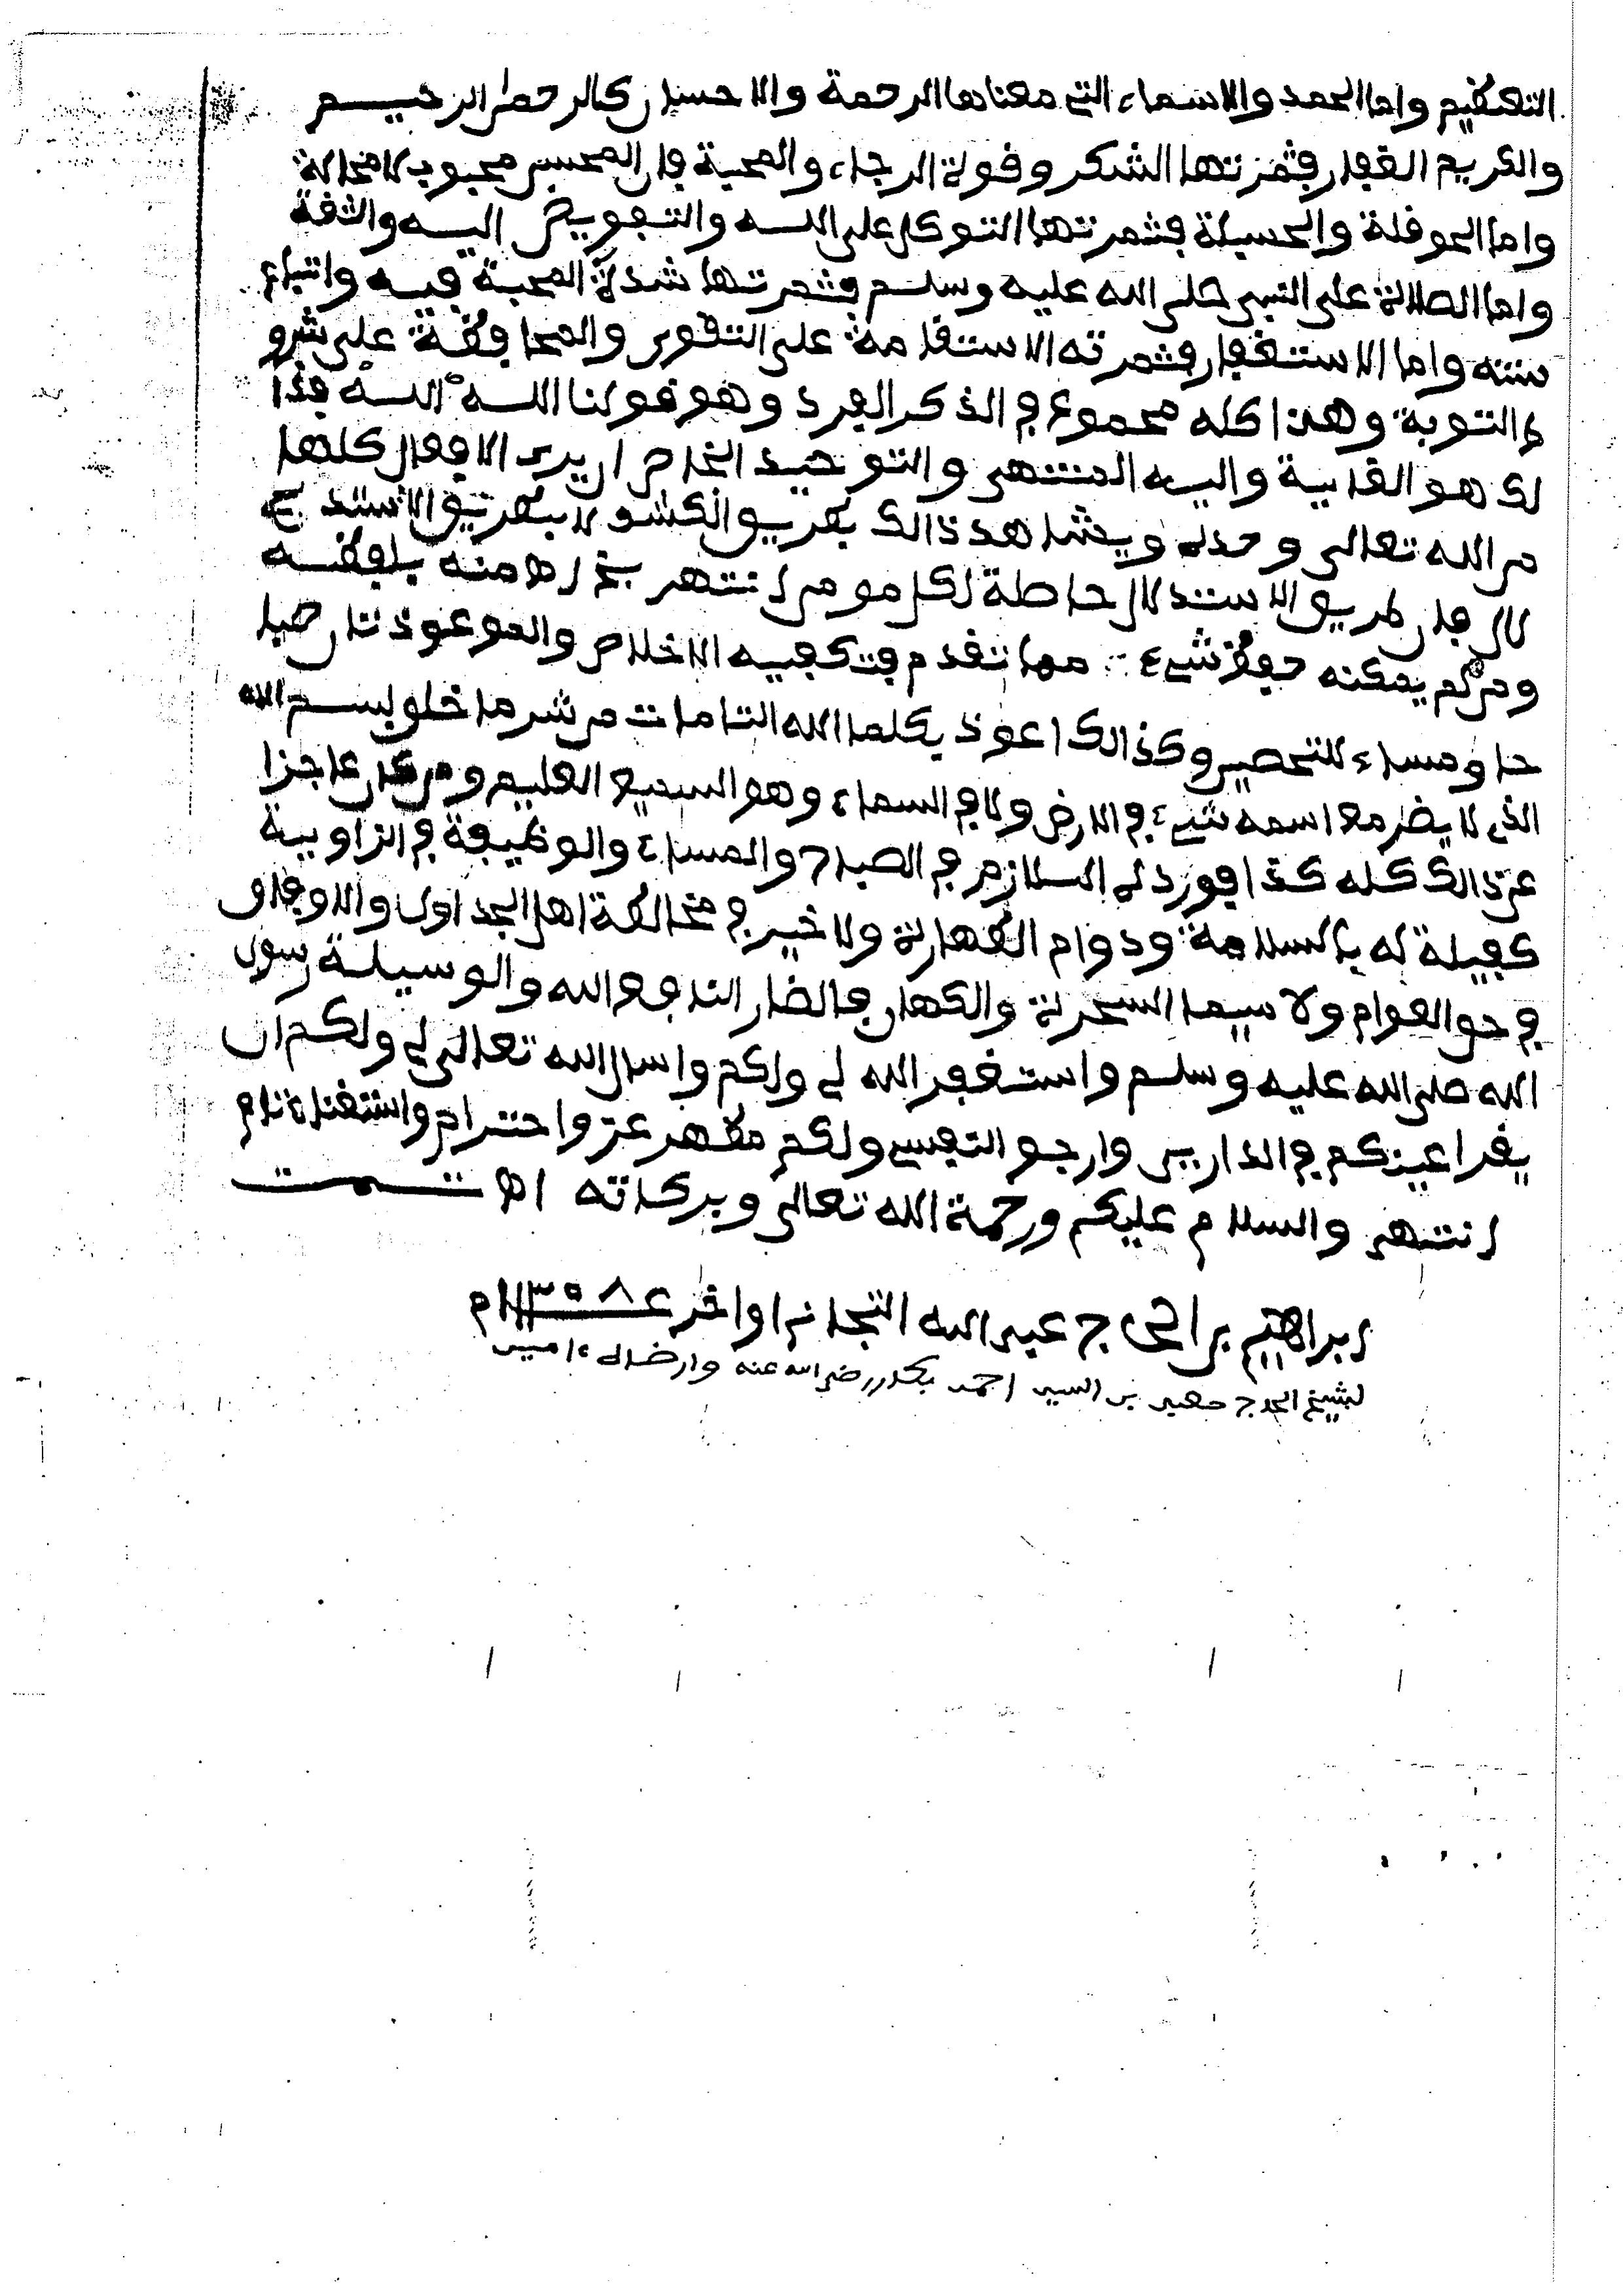 التعظيم واما الحمد والاسماء التي معناها الرحمة والاحسان كالرحمن الرحيم
والكريم الغفار فثمرتها الشكر وقوة الرجاء والمحبة فان المحسن محبوب لا محالة
واما الحوقلة والحسبلة فثمرتها التوكل على الله والتفويض اليه والثقة
واما الصلاة على النبي صلى الله عليه وسلم فثمرتها شدة المحبة فيه واتباع
سنته واما الاستغفار فثمرته الاستقامة على التقوى والمحافظة على شرو
ط التوبة وهذا كله مجموع في الذكر الفرد وهو قولنا الله الله فذا
لك هو الغاية واليه المنتهى والتوحيد الخاص ان يرى الافعال كلها
من الله تعالى وحده ويشاهد ذالك بطريق الكشف لا بطريق الاستد
لال فان طريق الاستدلال حاصلة لكل مومن انتهى منه بلفظه
ومن لم يمكنه حفظ شيء مما تقدم فتكفيه الاخلاص والمعوذتان صبا
حا ومساء للتحصين وكذالك اعوذ بكلمات الله التامات من شر ما خلق بسم الله
الذي لا يضر مع اسمه شيء في الارض ولا في السماء وهو السميع العليم ومن كان عاجزا
عن ذالك كله كفا فورده اللازم في الصباح والمساء والوظيفة في الزاوية
كفيلة له بالسلامة ودوام الطهارة ولا خير في مخالطة اهل الجداول والاوفاق
في حق العوام ولا سيما السحرة والكهان فالضار النافع الله والوسيلة رسول
الله صلى الله عليه وسلم واستغفر الله لي ولكم واسال الله تعالى لي ولكم ان
يقر اعينكم في الدارين وارجو لنفسي ولكم مظهر عز واحترام واستغناء تام
انتهى والسلام عليكم ورحمة الله تعالى وبركاته اه تمت
ابراهيم بن الحاج عبد الله التجاني اواخر ١٣٥٨ ع ام
لشيخ الحاج بن السيد احمد رضي الله عنه وارضاه ءامين